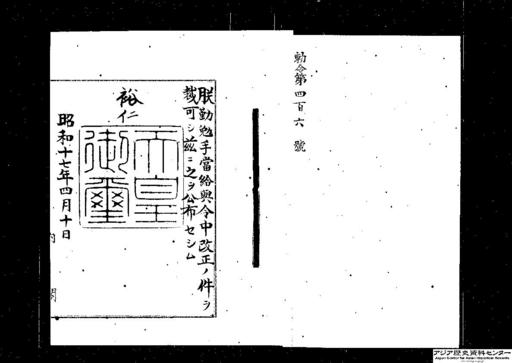 勅令第四百六號
朕勤勉手當給與令中改正ノ件ヲ
裁可シ茲ニ之ヲ公布セシム
裕仁
天皇
御璽
昭和十七年四月十日
内閣
アジア歴史資料センター
Japan Center for Asian Historical Records